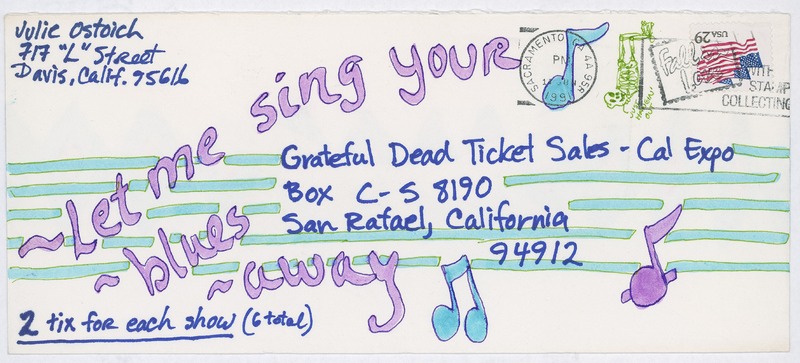 Julie Ostoich
717 "L" Street
Davis, Calif. 95616
~Let me sing your
~blues
~away
SACRAMENTO CA 958
PM
199
USA 29
WITH
STAMP
COLLECTING
Grateful Dead Ticket Sales - Cal Expo
Box C-S 8190
San Rafael, California
94912
2 tix for each show (6 total)